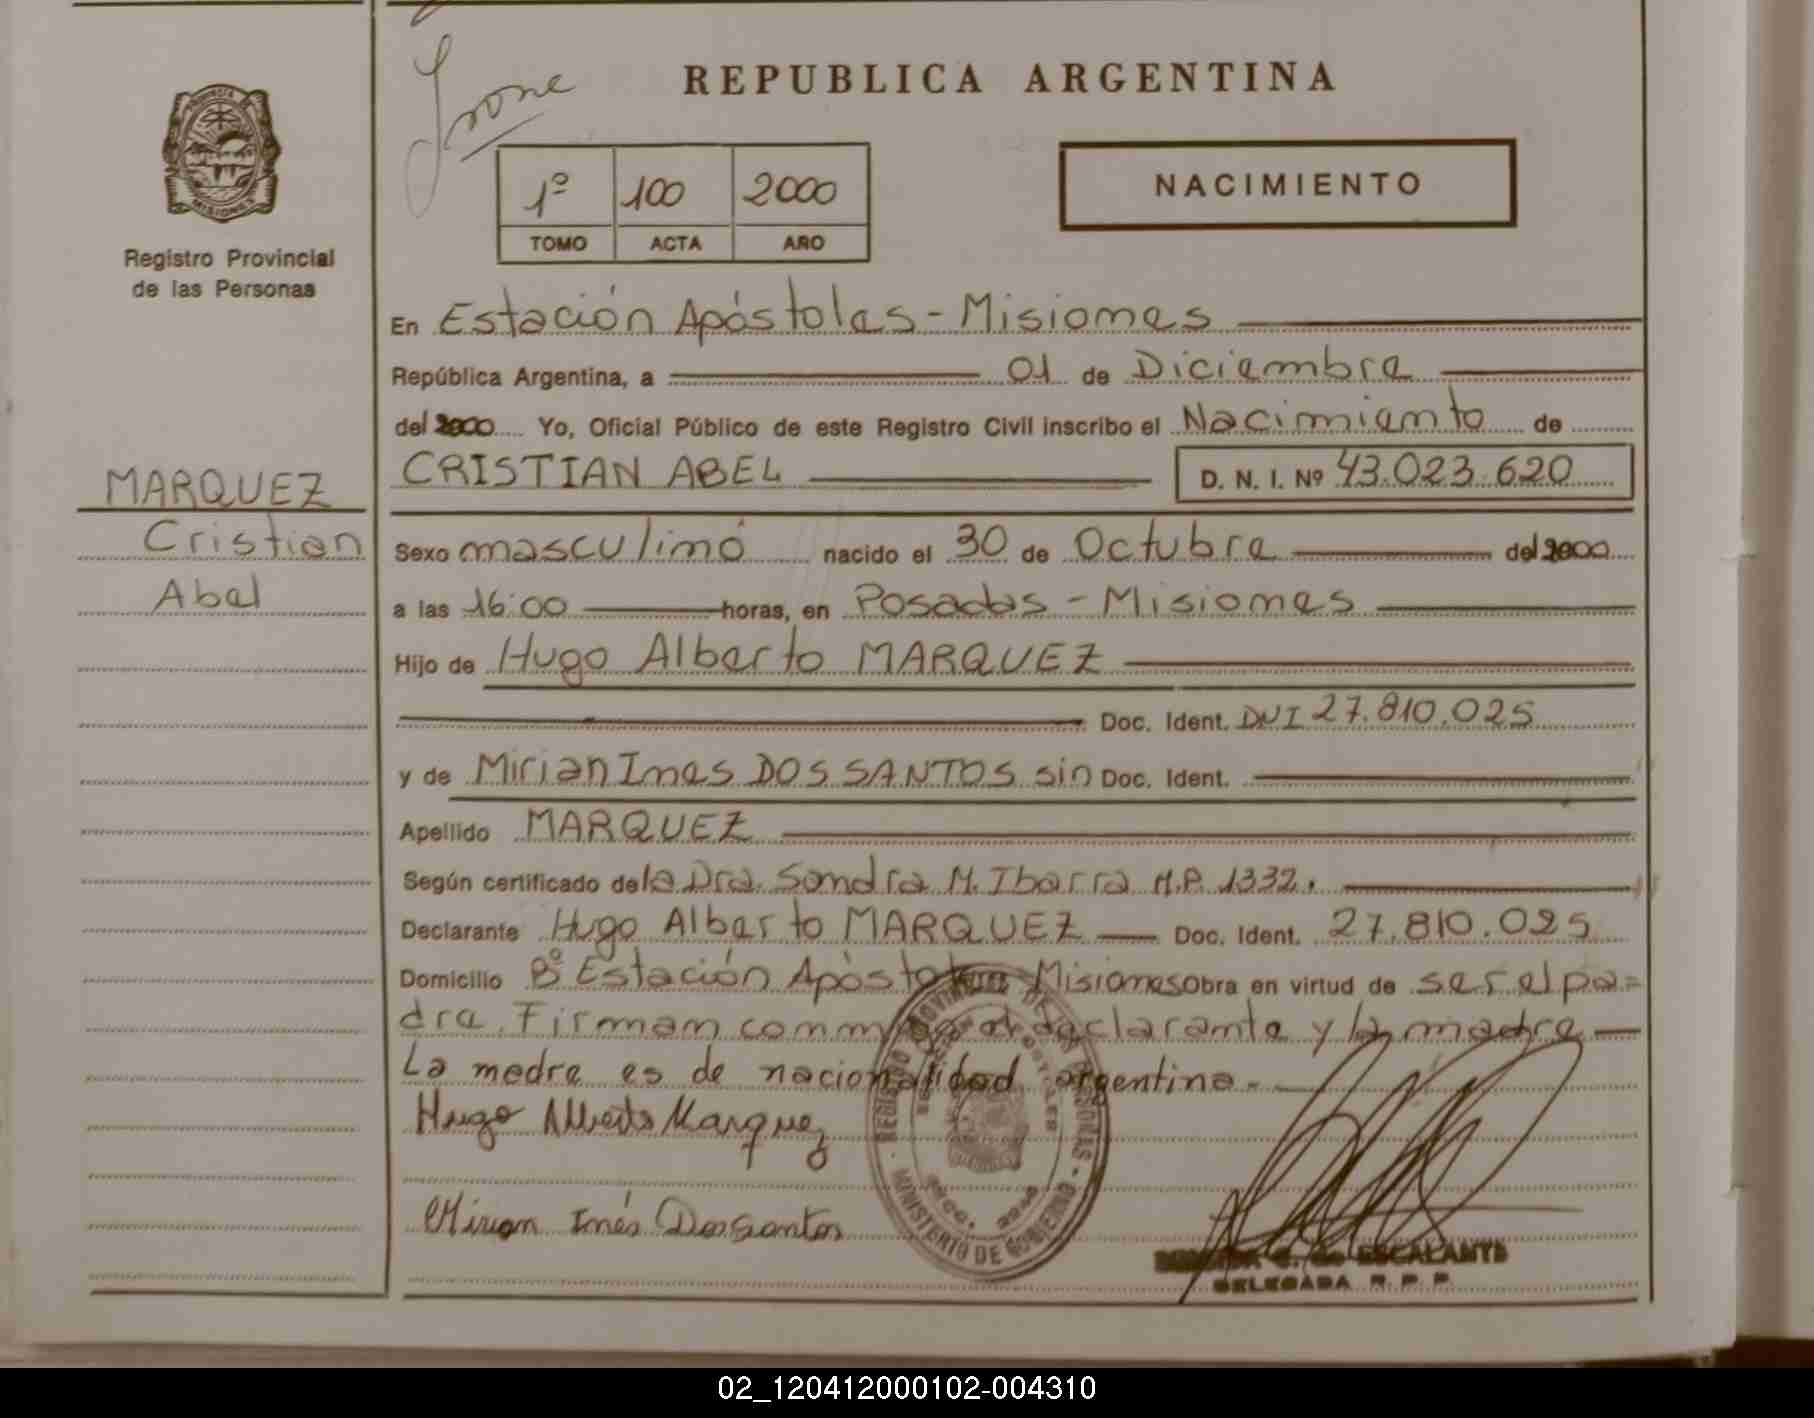 REPUBLICA ARGENTINA
PROVINCIA DE
MISIONES
Registro Provincial
de las Personas
1º 100 2000
TOMO ACTA AÑO
NACIMIENTO
En Estación Apóstoles - Misiones
República Argentina, a 01 de Diciembre
del 2000 Yo, Oficial Público de este Registro Civil inscribo el Nacimiento de
CRISTIAN ABEL D. N. I. Nº 43.023.620
MARQUEZ
Cristian
Abel
Sexo masculino nacido el 30 de Octubre del 2000
a las 16:00 horas, en Posadas - Misiones
Hijo de Hugo Alberto MARQUEZ
Doc. Ident. DNI 27.810.025
y de Mirian Ines DOS SANTOS sin Doc. Ident.
Apellido MARQUEZ
Según certificado de la Dra. Sandra M. Ibarra M.P. 1332.
Declarante Hugo Alberto MARQUEZ Doc. Ident. 27.810.025
Domicilio Bº Estación Apóstoles Misiones obra en virtud de ser el pa=
dre. Firman conmigo el declarante y la madre
La madre es de nacionalidad argentina.-
Hugo Alberto Marquez
Mirian Inés Dos Santos
REGISTRO PROVINCIAL DE LAS PERSONAS
MINISTERIO DE GOBIERNO
de ESCALANTE
DELEGADA R. P. P.
02_120412000102-004310